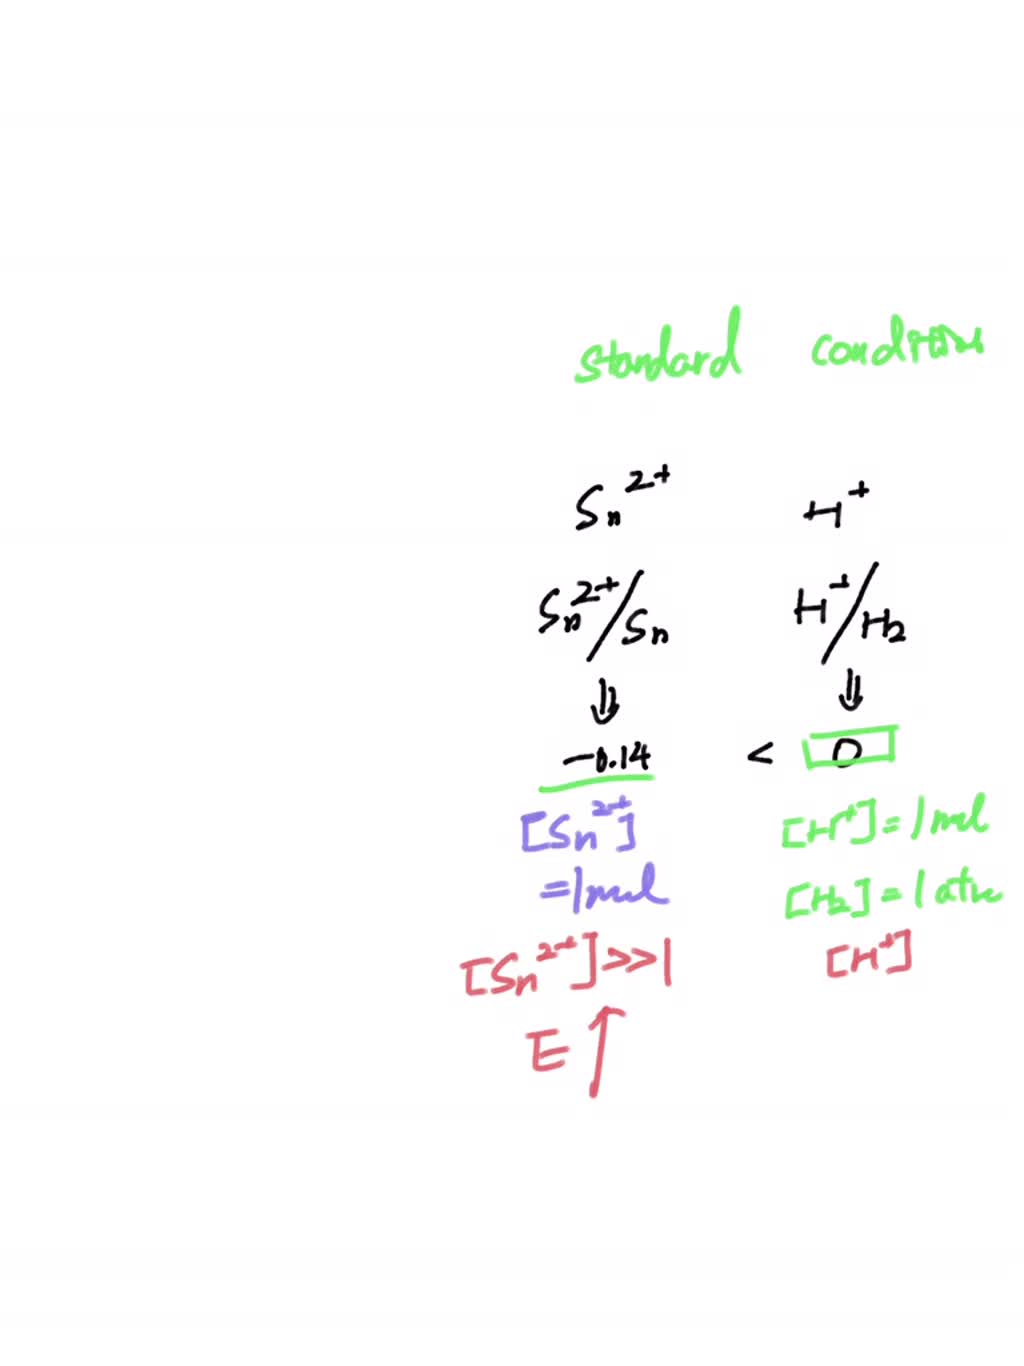 standard condition
Sn²⁺ H⁺
Sn²⁺/Sn H⁺/H₂
⇓ ⇓
-0.14 < 0
[Sn²⁺] [H⁺]=1mol
=1mol [H₂]=1atm
[Sn²⁺]>>1 [H⁺]
E ↑